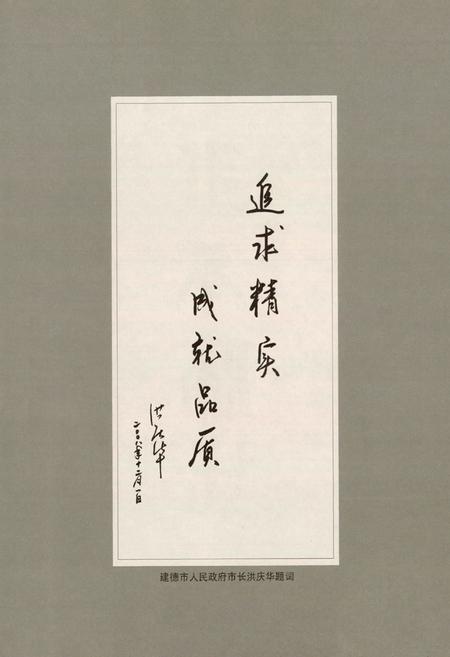 追求精实
成就品质
洪庆华
二〇〇八年十二月一日
建德市人民政府市长洪庆华题词